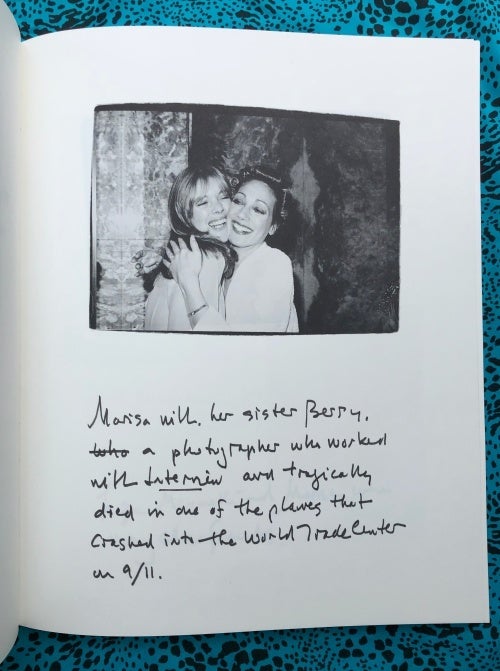 Marisa with her sister Berry,
who a photographer who worked
with Interview and tragically
died in one of the planes that
crashed into the World Trade Center
on 9/11.